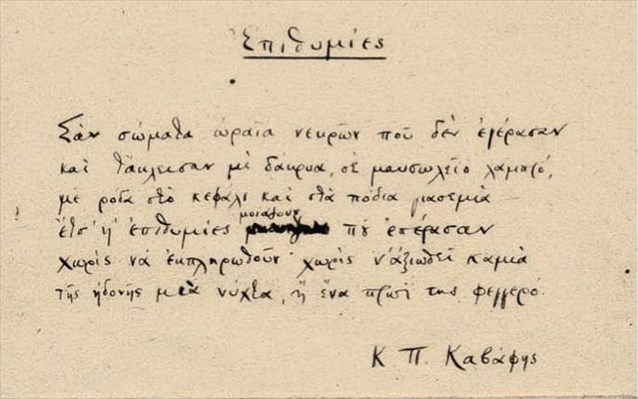 Ἐπιθυμίες
Σὰν σώματα ὡραῖα νεκρῶν ποῦ δὲν ἐγέρασαν
καὶ τἄκλεισαν μὲ δάκρυα, σὲ μαυσωλεῖο λαμπρό,
μὲ ρόδα στὸ κεφάλι καὶ στὰ πόδια γιασεμιὰ —
ἔτσ' ἡ ἐπιθυμίες μοιάζουν ποὺ ἐπέρασαν
χωρὶς νὰ ἐκπληρωθοῦν· χωρὶς ν' ἀξιωθεῖ καμιὰ
τῆς ἡδονῆς μιὰ νύχτα, ἢ ἕνα πρωΐ της φεγγερό.
Κ Π. Καβάφης